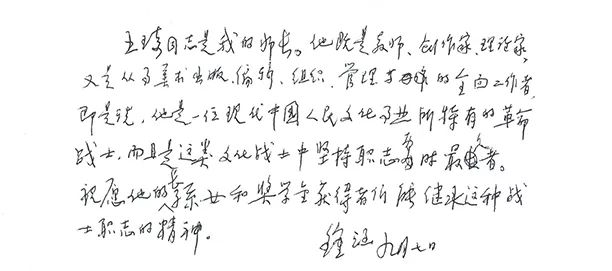 王琦同志是我的师长。他既是教师、创作家、理论家,
又是从事美术出版、编辑、组织、管理的全面工作者,
即是说,他是一位现代中国人民文化事业所特有的革命
战士,而且是这类文化战士中坚持职志历时最久者。
祝愿他的女和奖学金获得者们能继承这种战
士职志的精神。
钟涵 九月七日